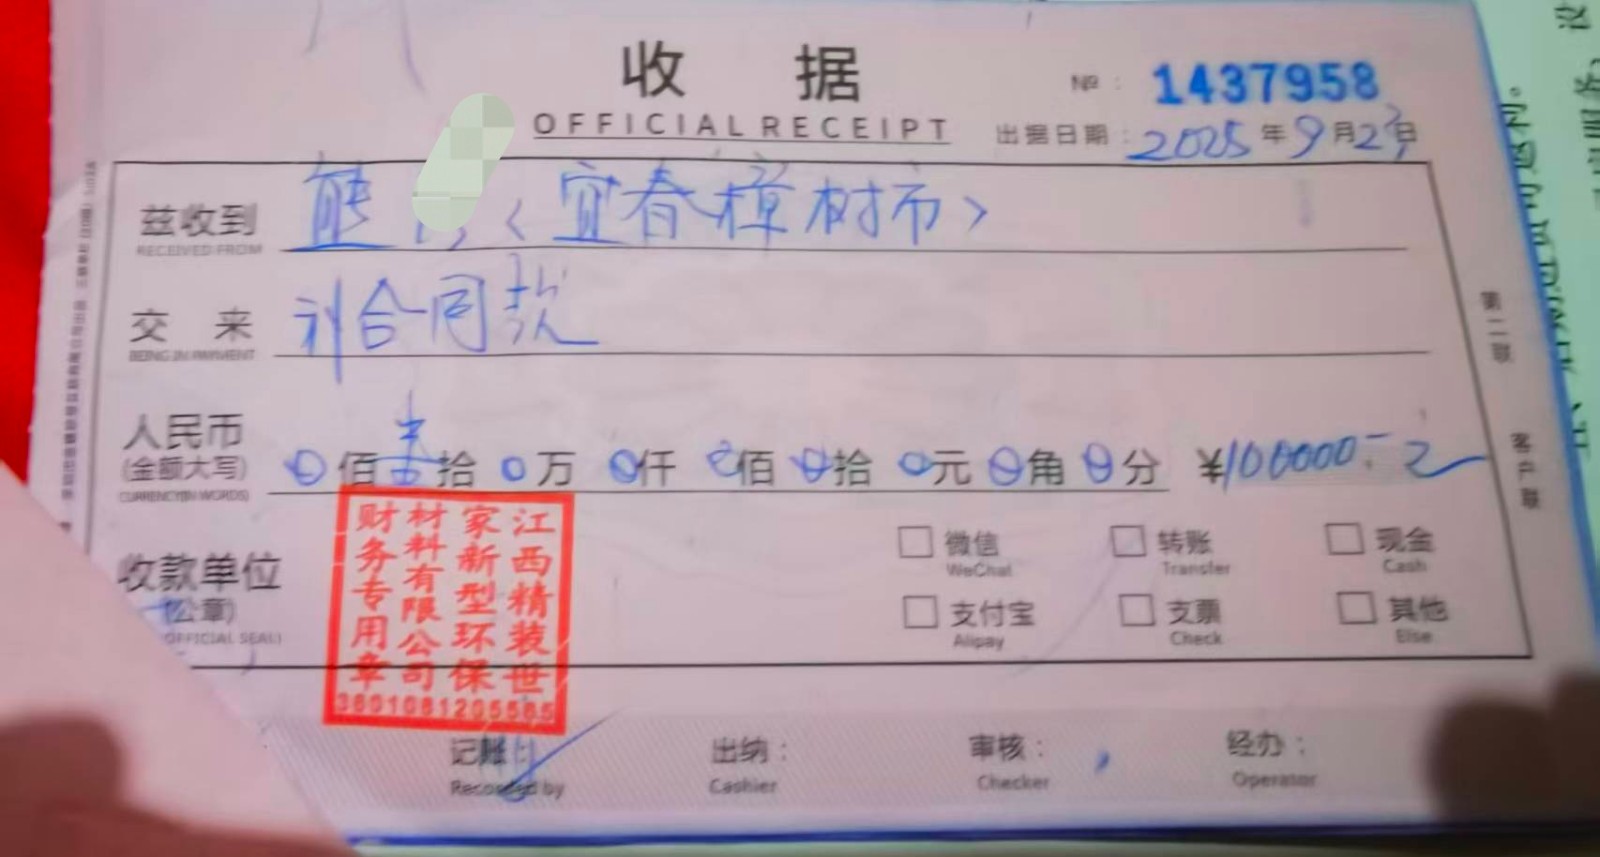 收 据
OFFICIAL RECEIPT
№: 1437958
出据日期: 2025年9月2日
兹收到 熊 <宜春樟树市>
RECEIVED FROM
交 来 合同款
BEING IN PAYMENT
人民币 0佰壹拾0万0仟0佰0拾0元0角0分 ¥100000
(金额大写)
CURRENCY(IN WORDS)
收款单位
(公章)
OFFICIAL SEAL)
江西精装世
家新型环保
材料有限公司
财务专用章
3601081205565
微信 转账 现金
WeChat Transfer Cash
支付宝 支票 其他
Alipay Check Else
记账: 出纳: 审核: 经办:
Recorded by Cashier Checker Operator
第二联
客户联